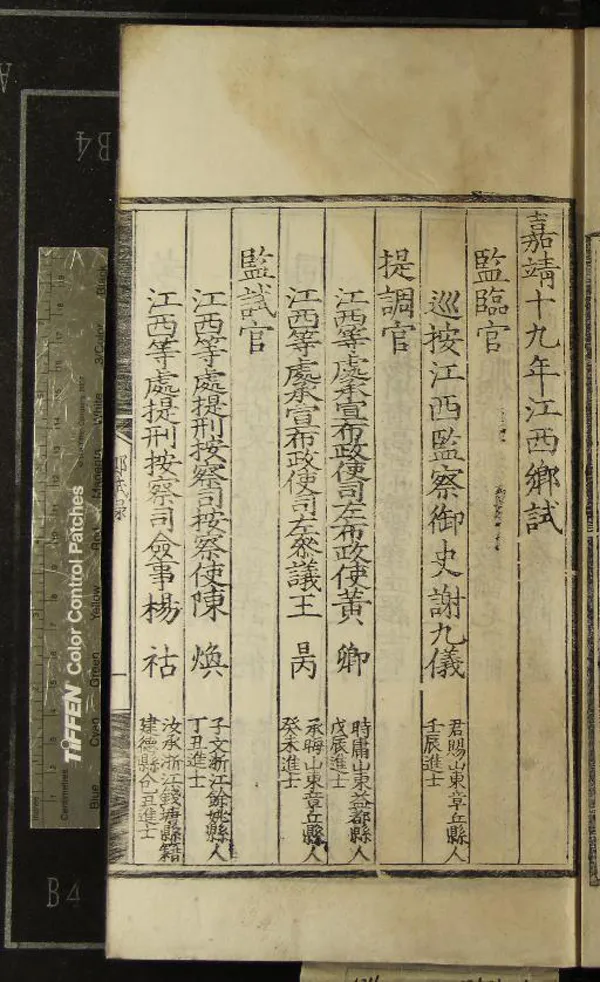 嘉靖十九年江西鄉試
監臨官
巡按江西監察御史謝九儀
君賜山東章丘縣人
壬辰進士
提調官
江西等處承宣布政使司左布政使黃 卿
時庸山東益都縣人
戊辰進士
江西等處承宣布政使司左參議王 昺
承晦山東章丘縣人
癸未進士
監試官
江西等處提刑按察司按察使陳 煥
子文浙江餘姚縣人
丁丑進士
江西等處提刑按察司僉事楊 祜
汝承浙江錢塘縣籍
建德縣人丑進士
B4
B4
TIFFEN Color Control Patches
Blue
Cyan
Green
Yellow
Red
Magenta
White
3/Color
Black
Centimetres